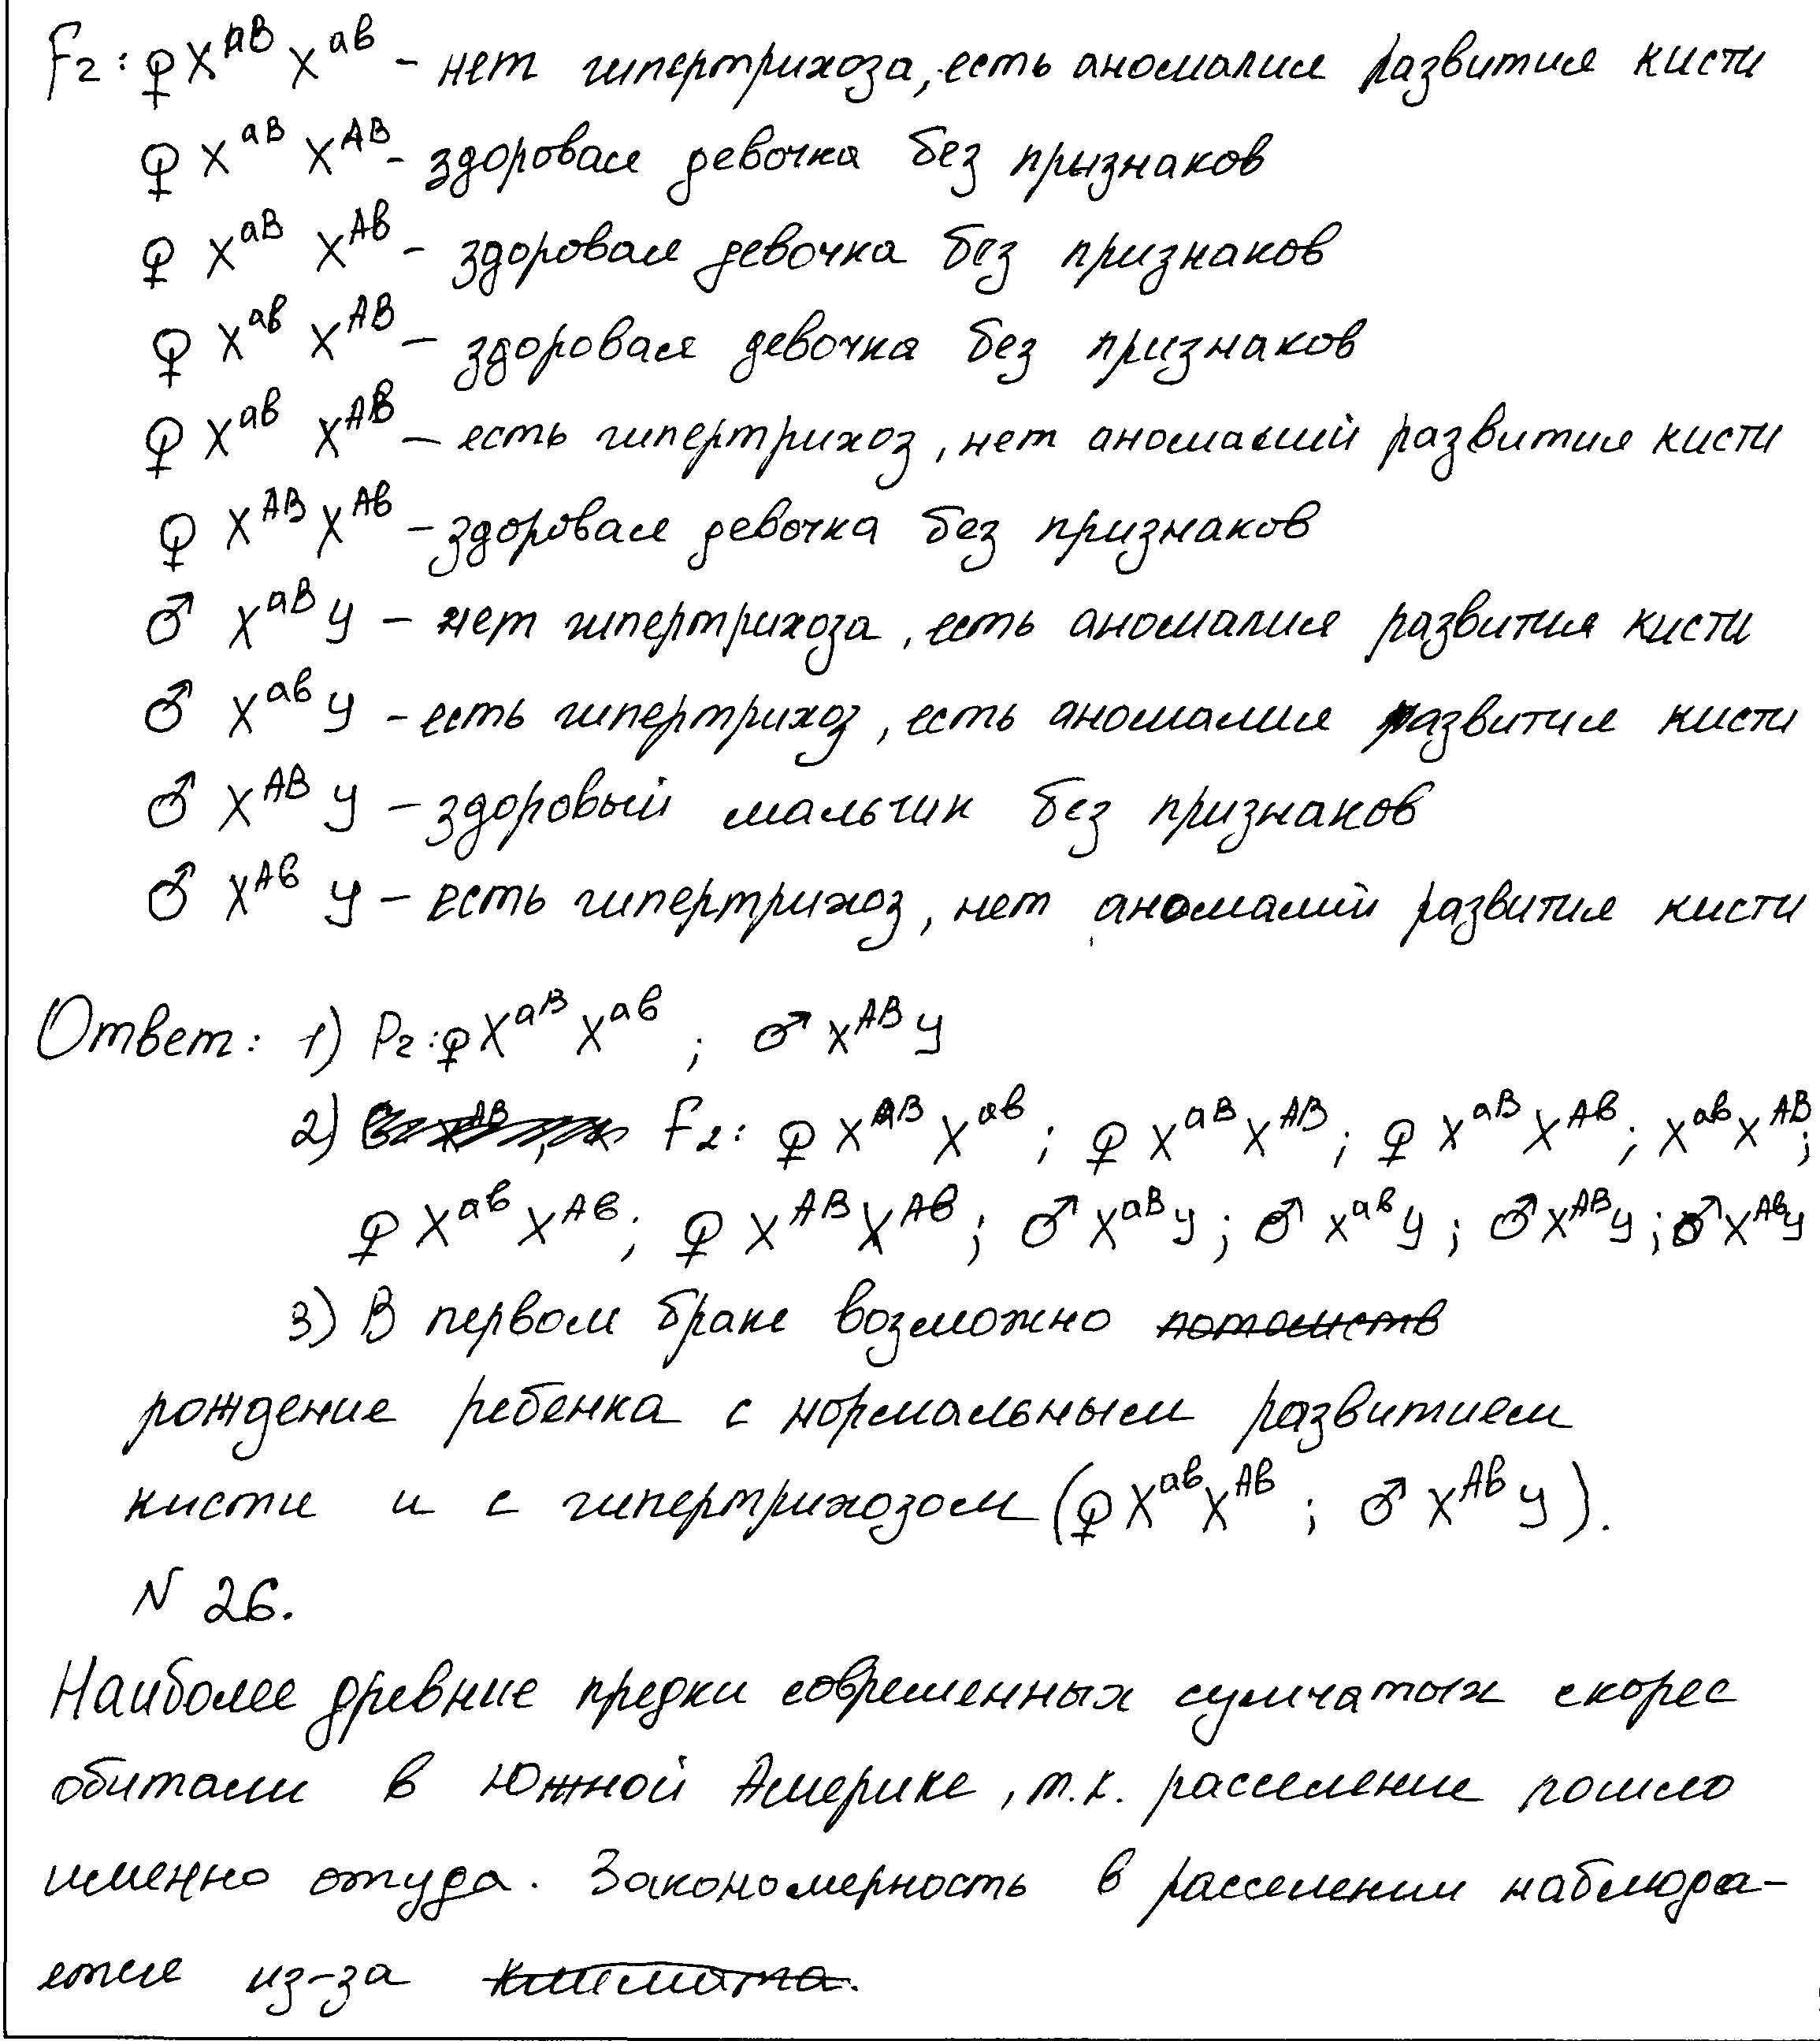 F₂: ♀ X^AB X^ab – нет гипертрихоза, есть аномалия развития кисти
♀ X^aB X^AB – здоровая девочка без признаков
♀ X^aB X^Ab – здоровая девочка без признаков
♀ X^ab X^AB – здоровая девочка без признаков
♀ X^ab X^AB – есть гипертрихоз, нет аномалий развития кисти
♀ X^AB X^Ab – здоровая девочка без признаков
♂ X^aB У – нет гипертрихоза, есть аномалия развития кисти
♂ X^ab У – есть гипертрихоз, есть аномалия развития кисти
♂ X^AB У – здоровый мальчик без признаков
♂ X^Ab У – есть гипертрихоз, нет аномалий развития кисти
Ответ: 1) P₂: ♀ X^aB X^ab ; ♂ X^AB У
2) F₂: ♀ X^AB X^ab ; ♀ X^aB X^AB ; ♀ X^aB X^Ab ; X^ab X^AB ;
♀ X^ab X^Ab ; ♀ X^AB X^Ab ; ♂ X^aB У ; ♂ X^ab У ; ♂ X^AB У ; ♂ X^Ab У
3) В первом браке возможно потомств
рождение ребенка с нормальным развитием
кисти и с гипертрихозом (♀ X^ab X^Ab ; ♂ X^Ab У).
N 26.
Наиболее древние предки современных сумчатых скорее
обитали в Южной Америке, т.к. расселение пошло
именно оттуда. Закономерность в расселении наблюда-
ется из-за климата.